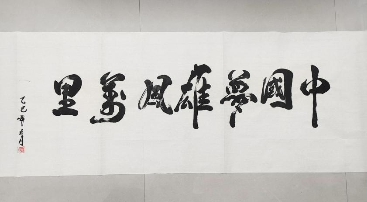 中國夢雄風萬里
乙巳年